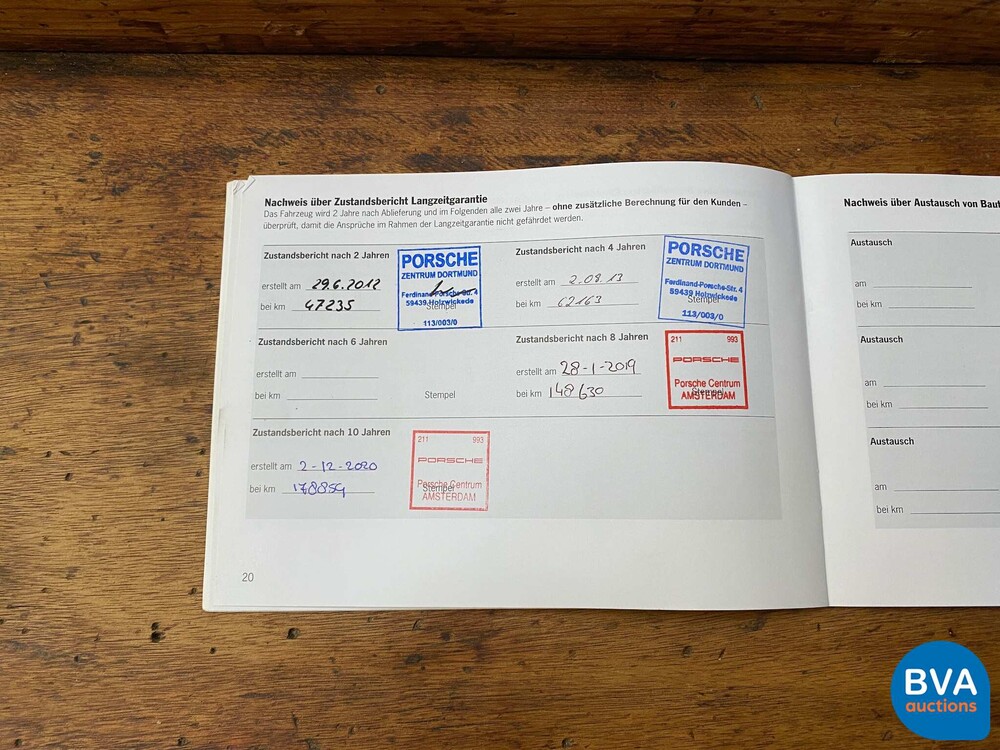 Nachweis über Zustandsbericht Langzeitgarantie
Das Fahrzeug wird 2 Jahre nach Ablieferung und im Folgenden alle zwei Jahre – ohne zusätzliche Berechnung für den Kunden –
überprüft, damit die Ansprüche im Rahmen der Langzeitgarantie nicht gefährdet werden.
Zustandsbericht nach 2 Jahren
erstellt am 29.6.2012
bei km 47235
PORSCHE
ZENTRUM DORTMUND
Ferdinand-Porsche-Str. 4
59439 Holzwickede
Stempel
113/003/0
Zustandsbericht nach 4 Jahren
erstellt am 2.08.13
bei km 62163
PORSCHE
ZENTRUM DORTMUND
Ferdinand-Porsche-Str. 4
59439 Holzwickede
Stempel
113/003/0
Zustandsbericht nach 6 Jahren
erstellt am
bei km
Stempel
Zustandsbericht nach 8 Jahren
erstellt am 28-1-2019
bei km 148630
211 993
PORSCHE
Porsche Centrum
AMSTERDAM
Stempel
Zustandsbericht nach 10 Jahren
erstellt am 2-12-2020
bei km 178859
211 993
PORSCHE
Porsche Centrum
Stempel
AMSTERDAM
20
Nachweis über Austausch von Baut
Austausch
am
bei km
Austausch
am
bei km
Austausch
am
bei km
BVA
auctions